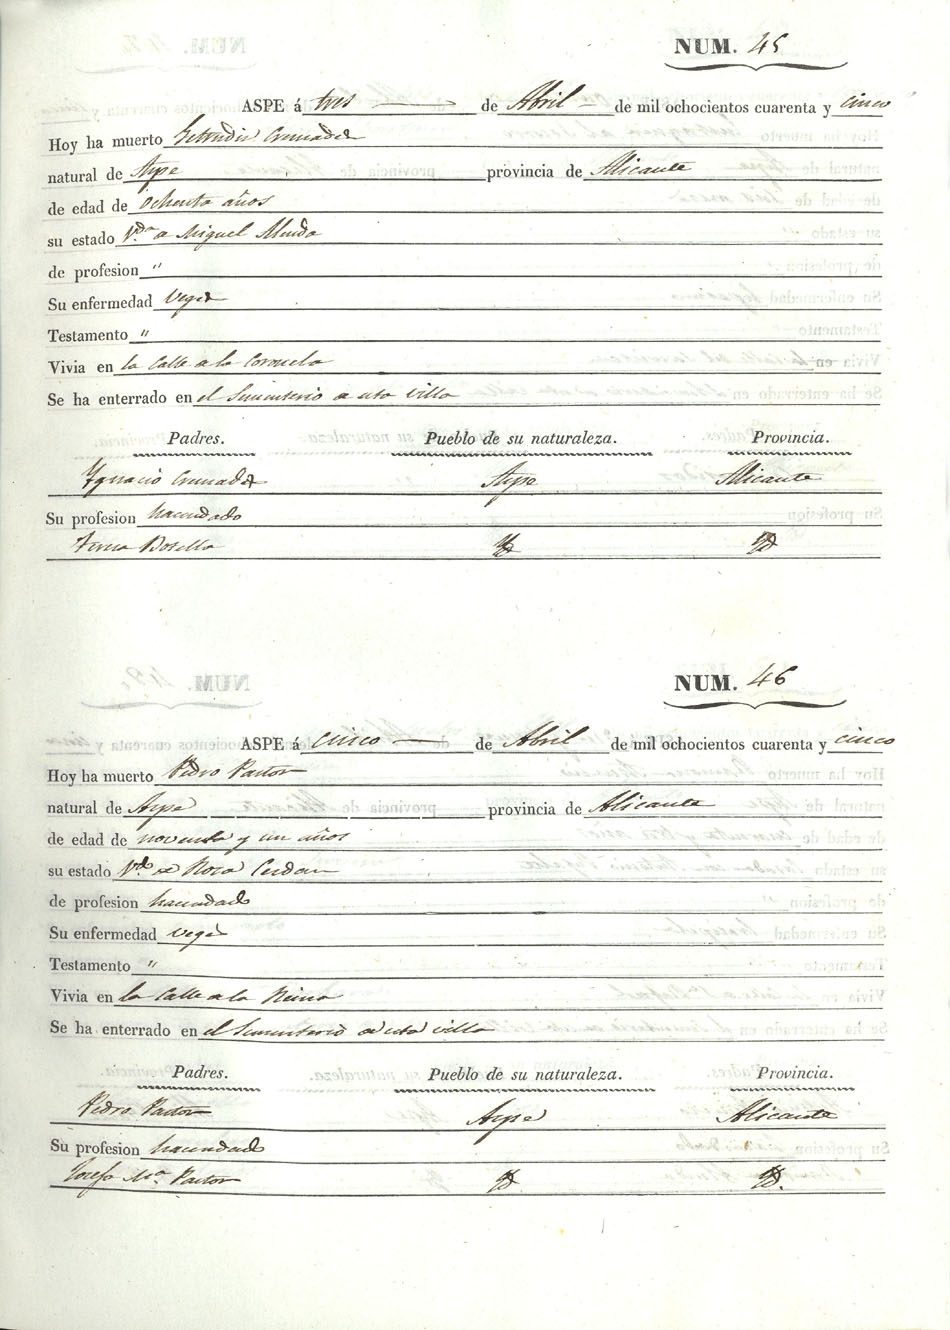 NUM. 45
ASPE á tres de Abril de mil ochocientos cuarenta y cinco
Hoy ha muerto Getrudis Cremades
natural de Aspe provincia de Alicante
de edad de ochenta años
su estado V.da de Miguel
de profesion "
Su enfermedad vegés
Testamento "
Vivia en la Calle de la Coronela
Se ha enterrado en el Sementerio de esta villa
Padres. Pueblo de su naturaleza. Provincia.
Ygnacio Cremades Aspe Alicante
Su profesion hacendado
Teresa Botella Yd Yd
NUM. 46
ASPE á cinco de Abril de mil ochocientos cuarenta y cinco
Hoy ha muerto Pedro Pastor
natural de Aspe provincia de Alicante
de edad de noventa y un años
su estado Vdo de Rosa Cerdan
de profesion hacendado
Su enfermedad vegés
Testamento "
Vivia en la Calle de la Reina
Se ha enterrado en el Sementerio de esta villa
Padres. Pueblo de su naturaleza. Provincia.
Pedro Pastor Aspe Alicante
Su profesion hacendado
Josefa Ma. Pastor Yd Yd.